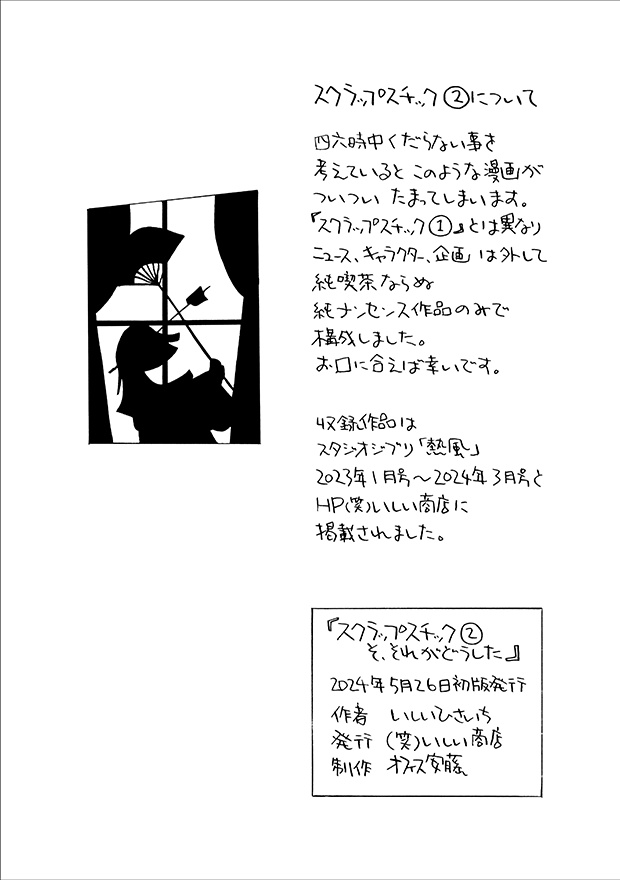 スクラップスチック②について
四六時中くだらない事を
考えていると このような漫画が
ついつい たまってしまいます。
『スクラップスチック①』とは異なり
ニュース、キャラクター、企画 は外して
純喫茶ならぬ
純ナンセンス作品のみで
構成しました。
お口に合えば幸いです。
収録作品は
スタジオジブリ「熱風」
2023年1月号〜2024年3月号と
HP(笑)いしい商店に
掲載されました。
『スクラップスチック②
そ、それがどうした』
2024年5月26日初版発行
作者 いしいひさいち
発行 (笑)いしい商店
制作 オフィス安藤